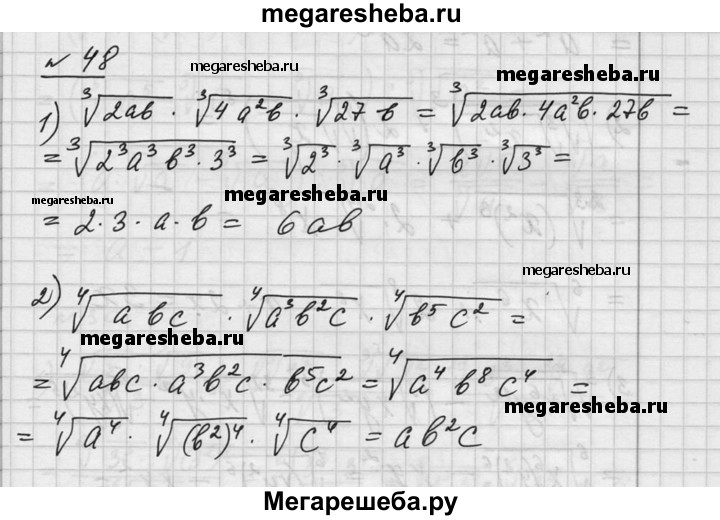 megaresheba.ru
№ 48
megaresheba.ru
megaresheba.ru
1) ∛(2ab) · ∛(4a²b) · ∛(27b) = ∛(2ab · 4a²b · 27b) =
= ∛(2³a³b³ · 3³) = ∛(2³) · ∛(a³) · ∛(b³) · ∛(3³) =
megaresheba.ru
megaresheba.ru
= 2 · 3 · a · b = 6ab
megaresheba.ru
2) ∜(abc) · ∜(a³b²c) · ∜(b⁵c²) =
megaresheba.ru
= ∜(abc · a³b²c · b⁵c²) = ∜(a⁴b⁸c⁴) =
megaresheba.ru
= ∜(a⁴) · ∜((b²)⁴) · ∜(c⁴) = ab²c
Мегарешеба.ру